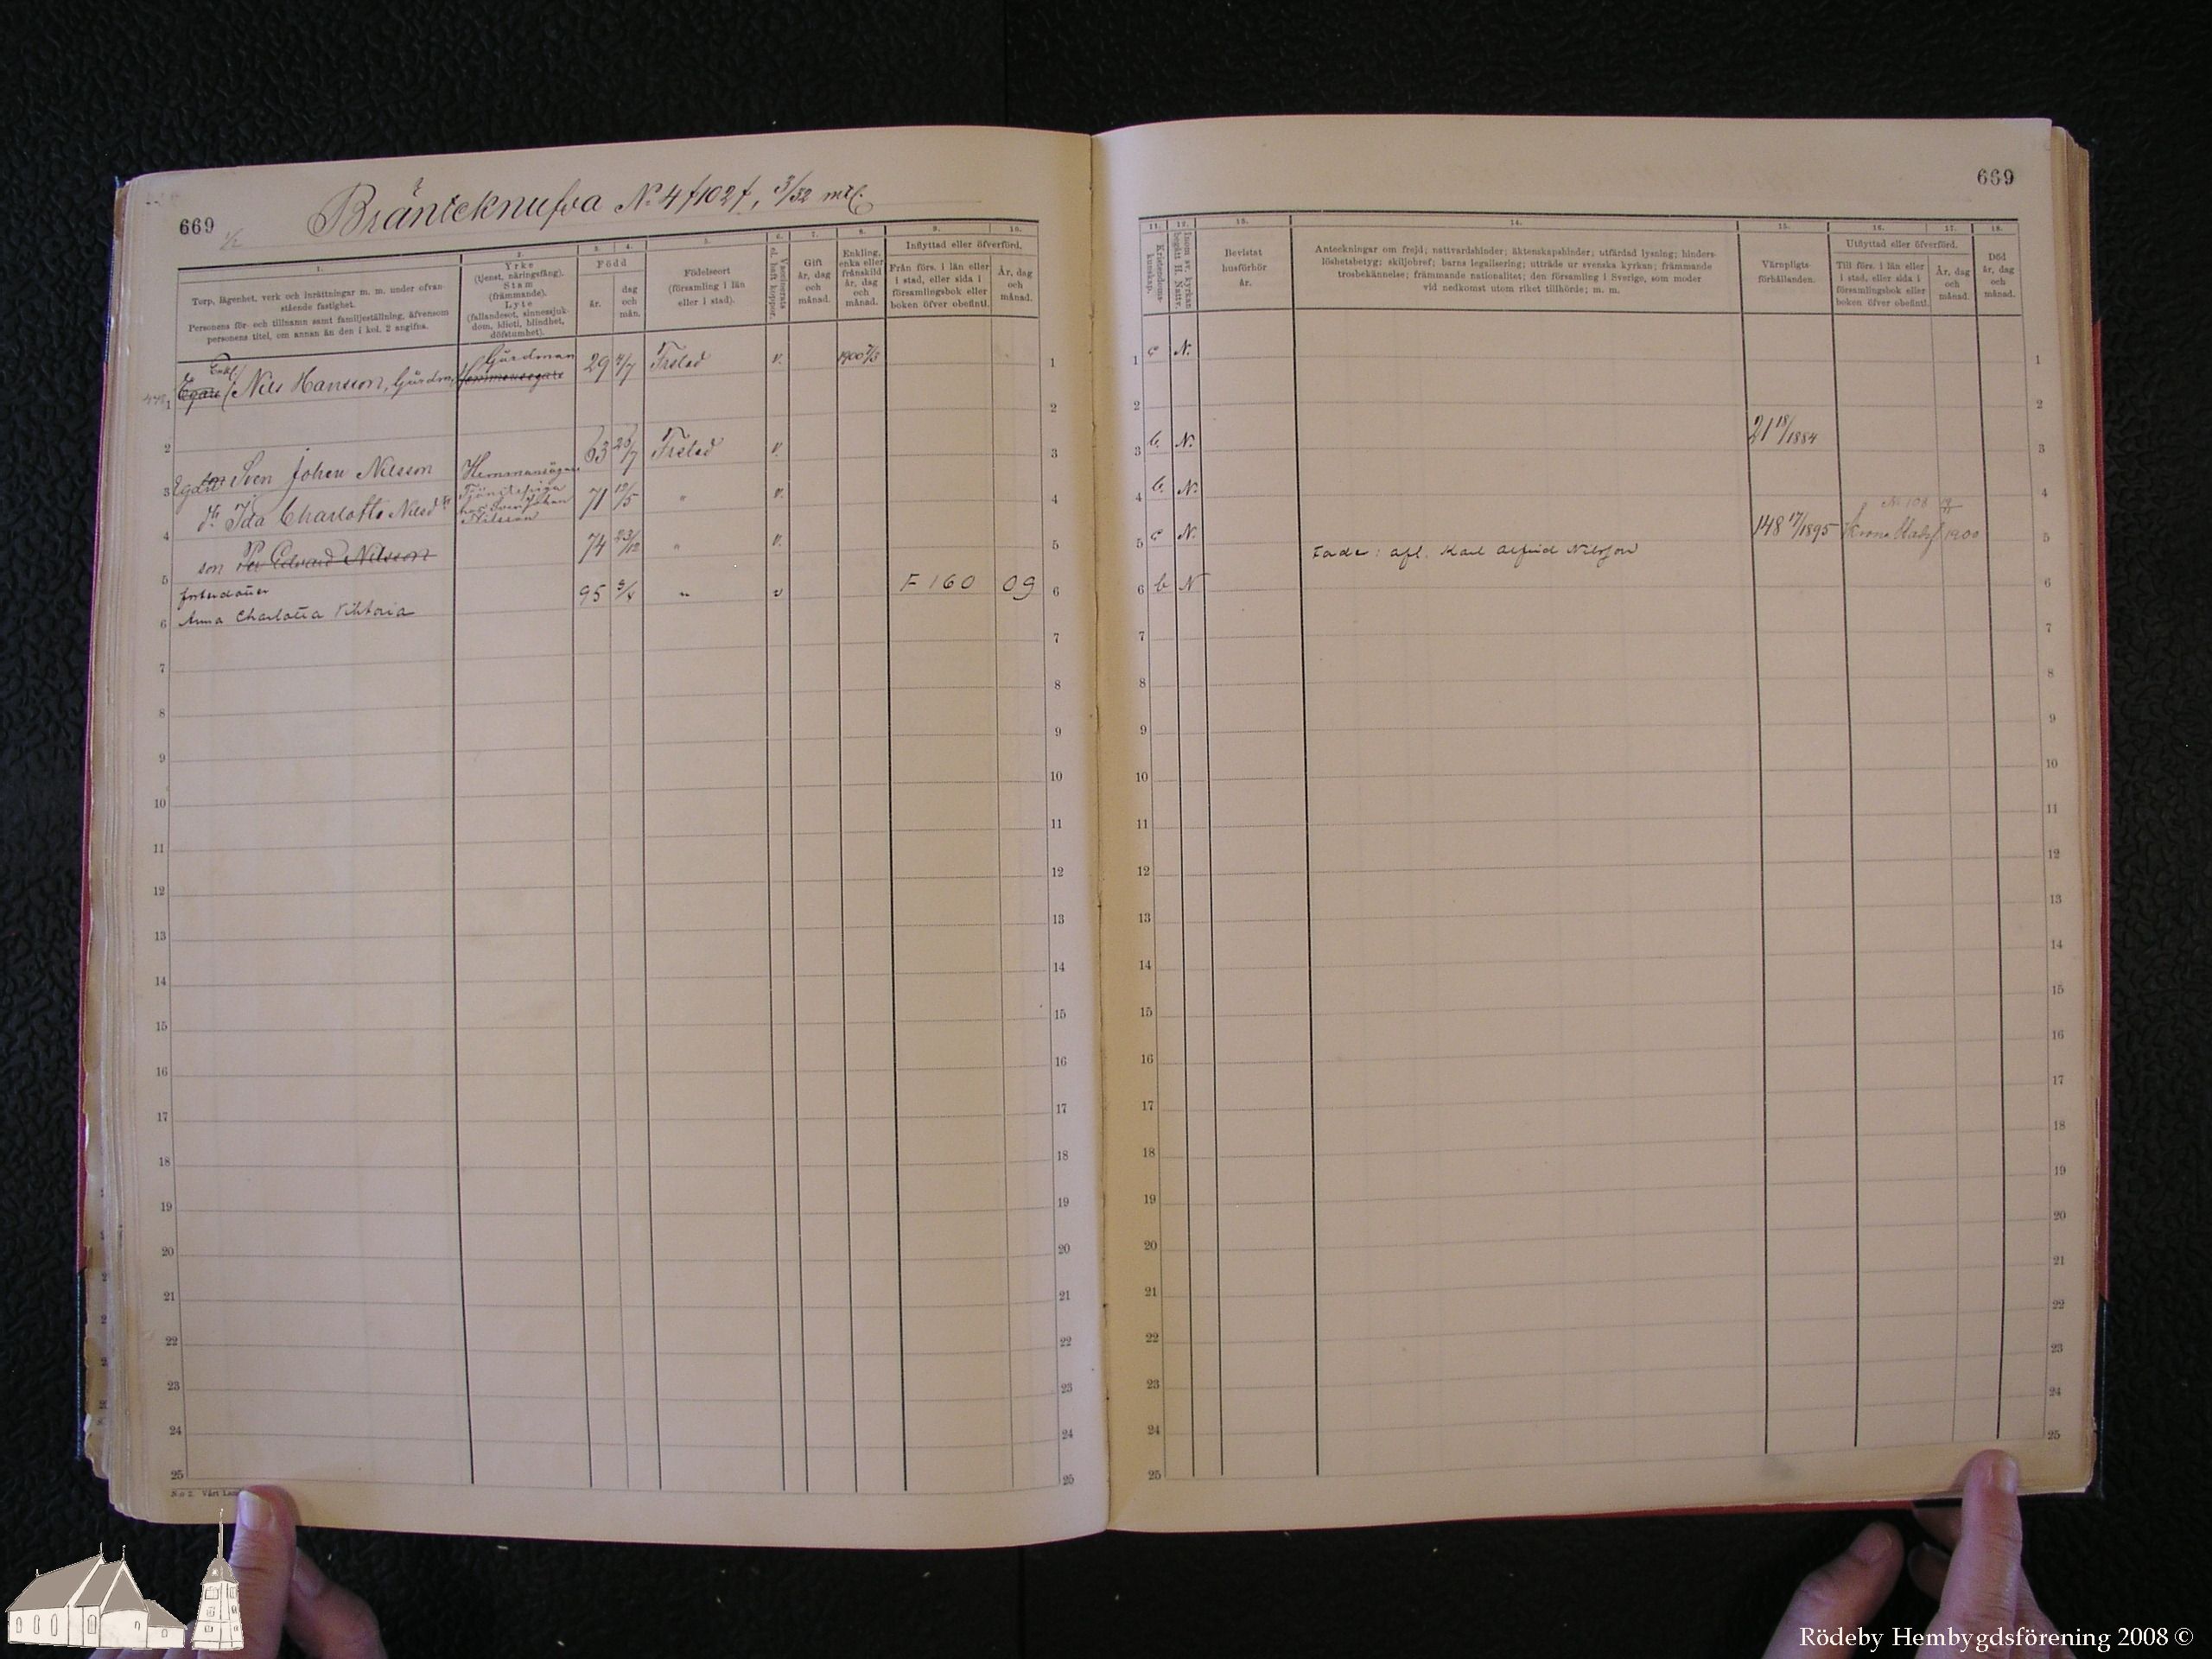 669
Bränteknufva No 4 f102f, 3/32 mtl.
1.
Torp, lägenhet, verk och inrättningar m. m. under ofvan-
stående fastighet.
Personens för- och tillnamn samt familjeställning, äfvensom
personens titel, om annan än den i kol. 2 angifna.
2.
Yrke
(tjenst, näringsfång).
Stam
(främmande).
Lyte
(fallandesot, sinnessjuk-
dom, idioti, blindhet,
döfstumhet).
3. 4.
Född
år.
dag
och
mån.
5.
Födelseort
(församling i län
eller i stad).
6.
Vaccinerats
el. haft koppor.
7.
Gift
år, dag
och
månad.
8.
Enkling,
enka eller
frånskild
år, dag
och
månad.
9. 10.
Inflyttad eller öfverförd.
Från förs. i län eller
i stad, eller sida i
församlingsbok eller
boken öfver obefintl.
År, dag
och
månad.
Enkl.
Egare Nils Hansson, Gårdm. Gårdman 29 4/7 Frslad v. 1900 7/3
Hemmansegare
Egare son Sven Johan Nilsson Hemmansägare 63 25/7 Frslad v.
dr Ida Charlotta Nilsdr Tjänstepiga hos Sven Johan Nilsson 71 12/5 " v.
son Per Edvard Nilsson 74 23/12 " v.
fosterdotter
Anna Charlotta Viktoria 95 " v F 160 09
1
2
3
4
5
6
7
8
9
10
11
12
13
14
15
16
17
18
19
20
21
22
23
24
25
669
11.
Kristendoms-
kunskap.
12.
Inom sv. kyrkan
begått H. Nattv.
13.
Bevistat
husförhör
år.
14.
Anteckningar om frejd; nattvardshinder; äktenskapshinder; utfärdad lysning; hinders-
löshetsbetyg; skiljobref; barns legalisering; utträde ur svenska kyrkan; främmande
trosbekännelse; främmande nationalitet; den församling i Sverige, som moder
vid nedkomst utom riket tillhörde; m. m.
15.
Värnpligts-
förhållanden.
16. 17.
Utflyttad eller öfverförd.
Till förs. i län eller
i stad, eller sida i
församlingsbok eller
boken öfver obefintl.
År, dag
och
månad.
18.
Död
år, dag
och
månad.
1 c N.
2
3 b. N. 21 18/1884
4 b. N.
No 108
5 c N. Fader: afl. Karl Alfrid Nilsson 148 17/1895 1900
6 b N
7
8
9
10
11
12
13
14
15
16
17
18
19
20
21
22
23
24
25
Rödeby Hembygdsförening 2008 ©